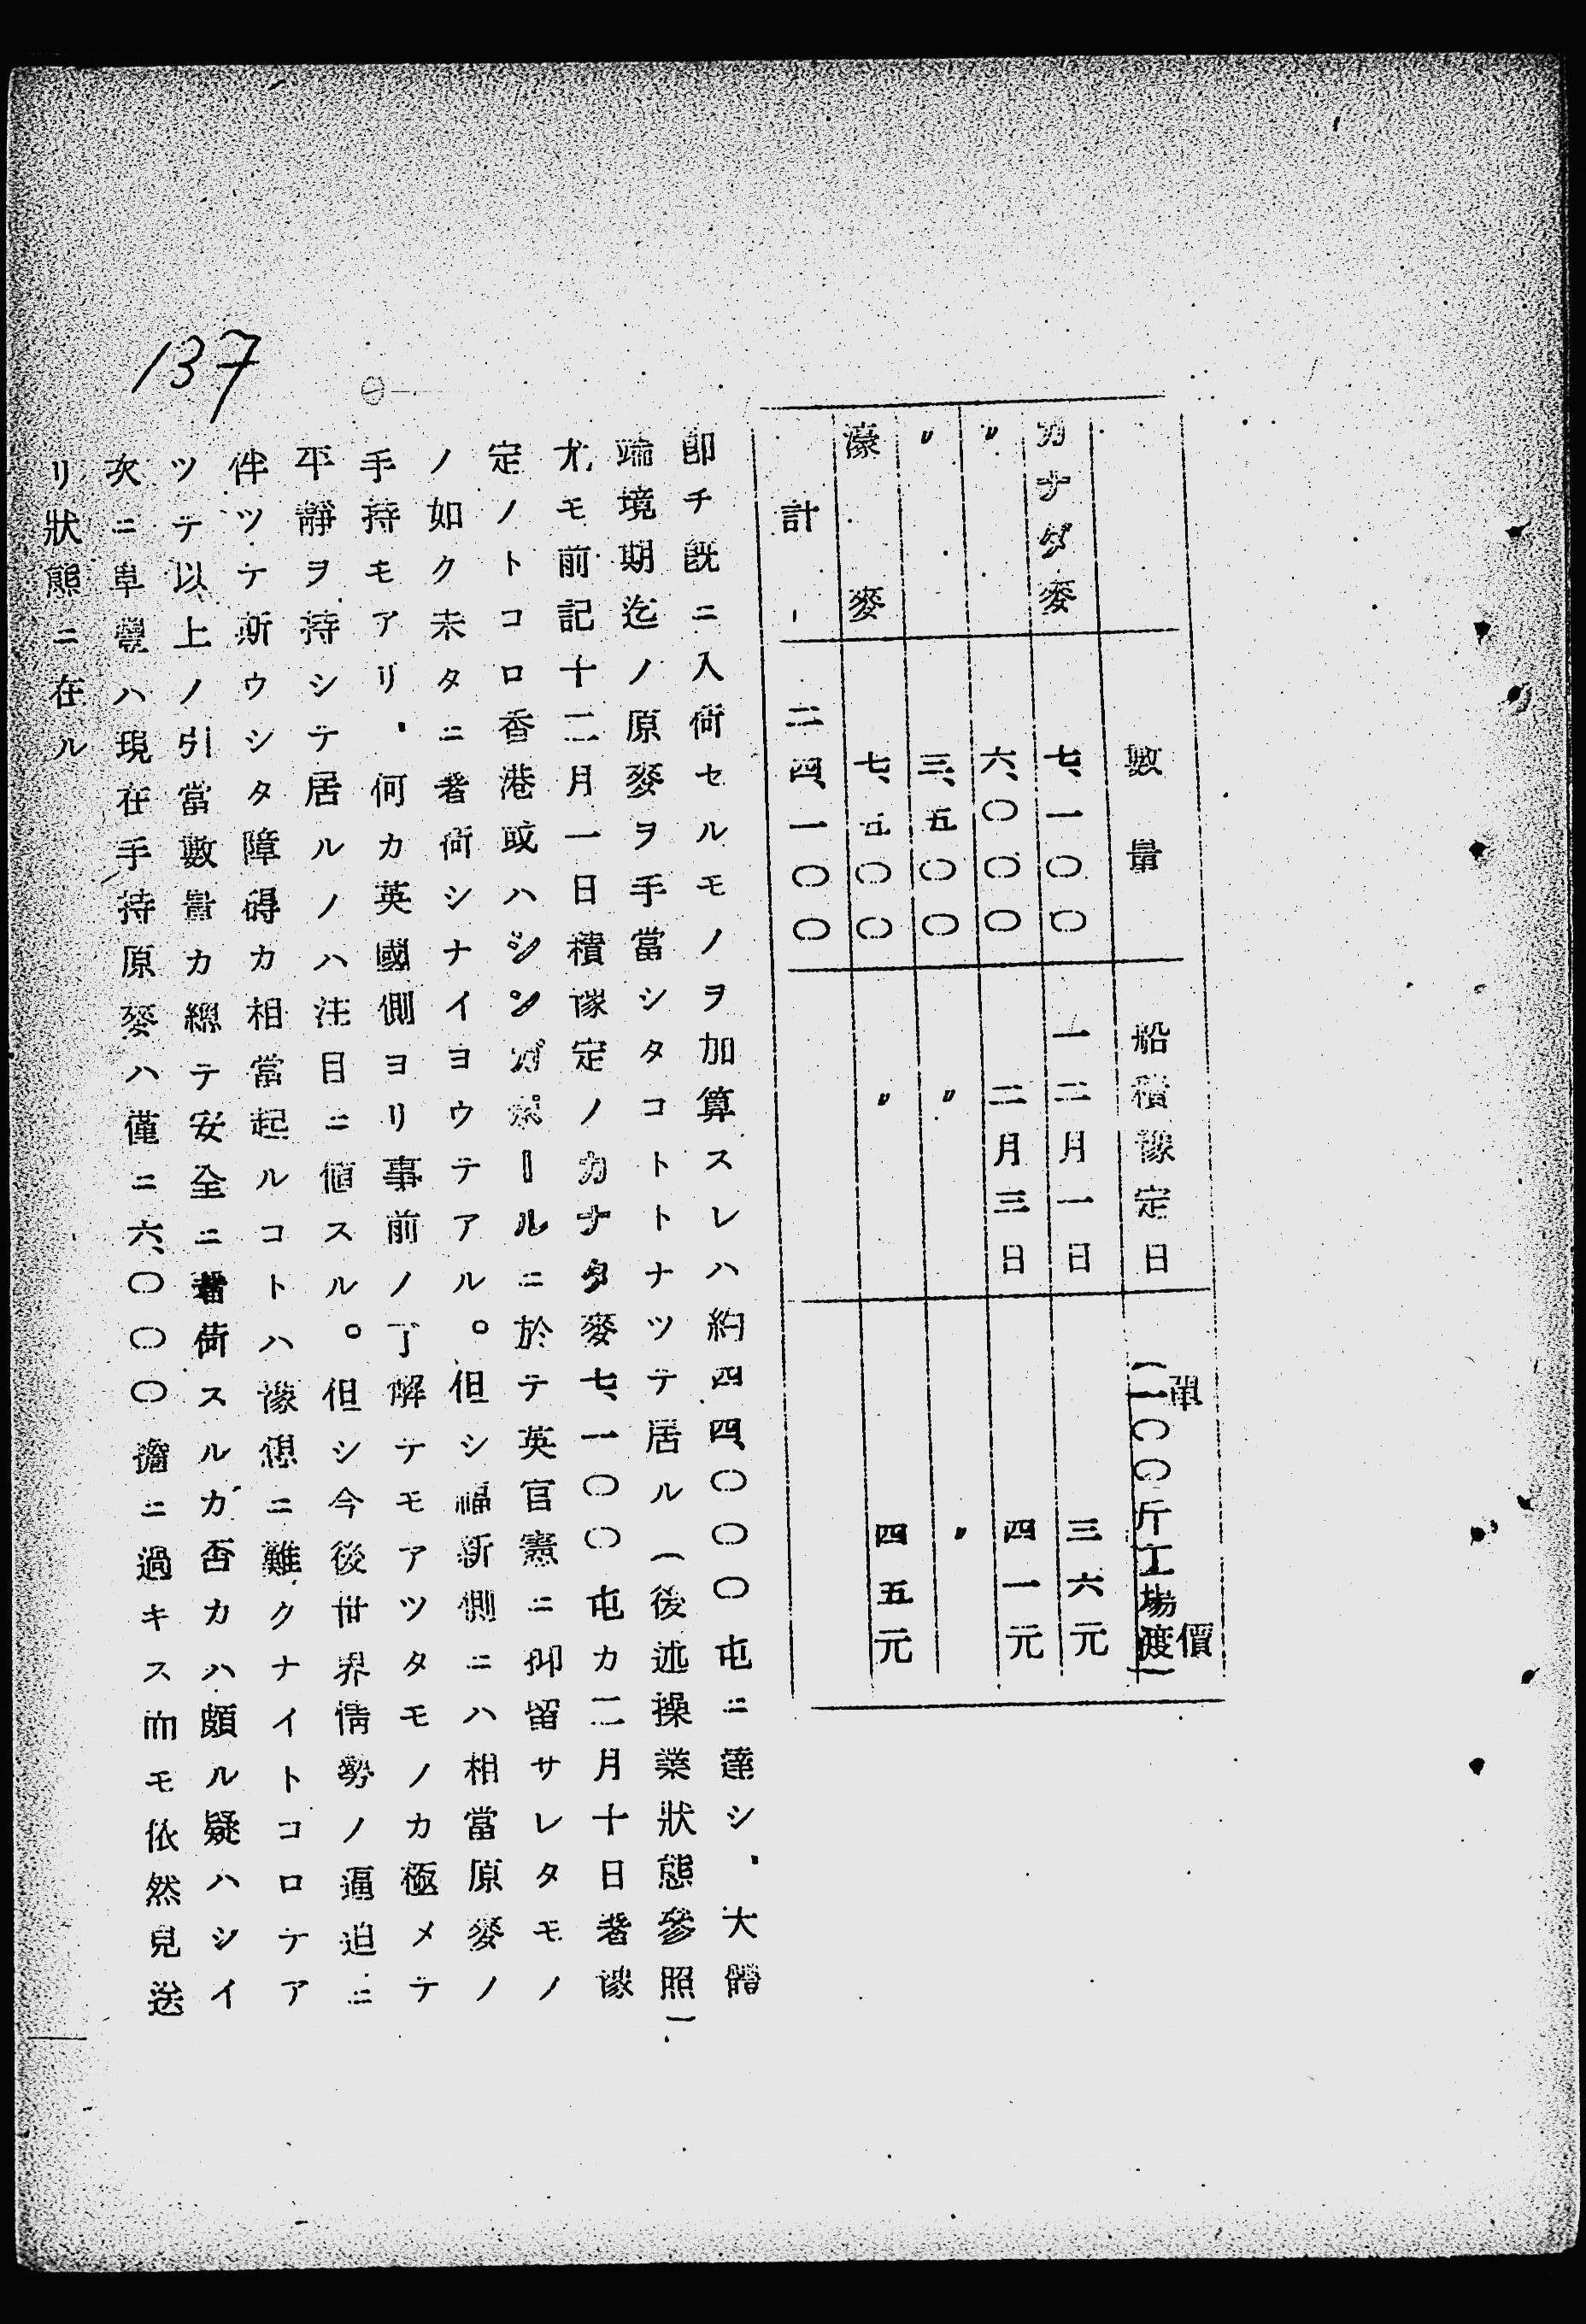 數量 船積豫定日 單價(一〇〇斤工場渡)
カナダ麥 七、一〇〇 一二月一日 三六元
〃 六、〇〇〇 二月三日 四一元
〃 三、五〇〇 〃 〃
濠麥 七、五〇〇 〃 四五元
計 二四、一〇〇
卽チ既ニ入荷セルモノヲ加算スレハ約四四、〇〇〇屯ニ達シ、大體
端境期迄ノ原麥ヲ手當シタコトトナツテ居ル(後述操業狀態參照)
尤モ前記十二月一日積豫定ノカナダ麥七、一〇〇屯カ二月十日著豫
定ノトコロ香港或ハシンガポールニ於テ英官憲ニ抑留サレタモノ
ノ如ク未タニ著荷シナイヨウテアル。但シ福新側ニハ相當原麥ノ
手持モアリ、何カ英國側ヨリ事前ノ了解テモアツタモノカ極メテ
平靜ヲ持シテ居ルノハ注目ニ値スル。但シ今後世界情勢ノ逼迫ニ
伴ツテ斯ウシタ障碍カ相當起ルコトハ豫想ニ難クナイトコロテア
ツテ以上ノ引當數量カ總テ安全ニ著荷スルカ否カハ頗ル疑ハシイ
次ニ阜豐ハ現在手持原麥ハ僅ニ六、〇〇〇擔ニ過キス而モ依然見送
リ狀態ニ在ル
137